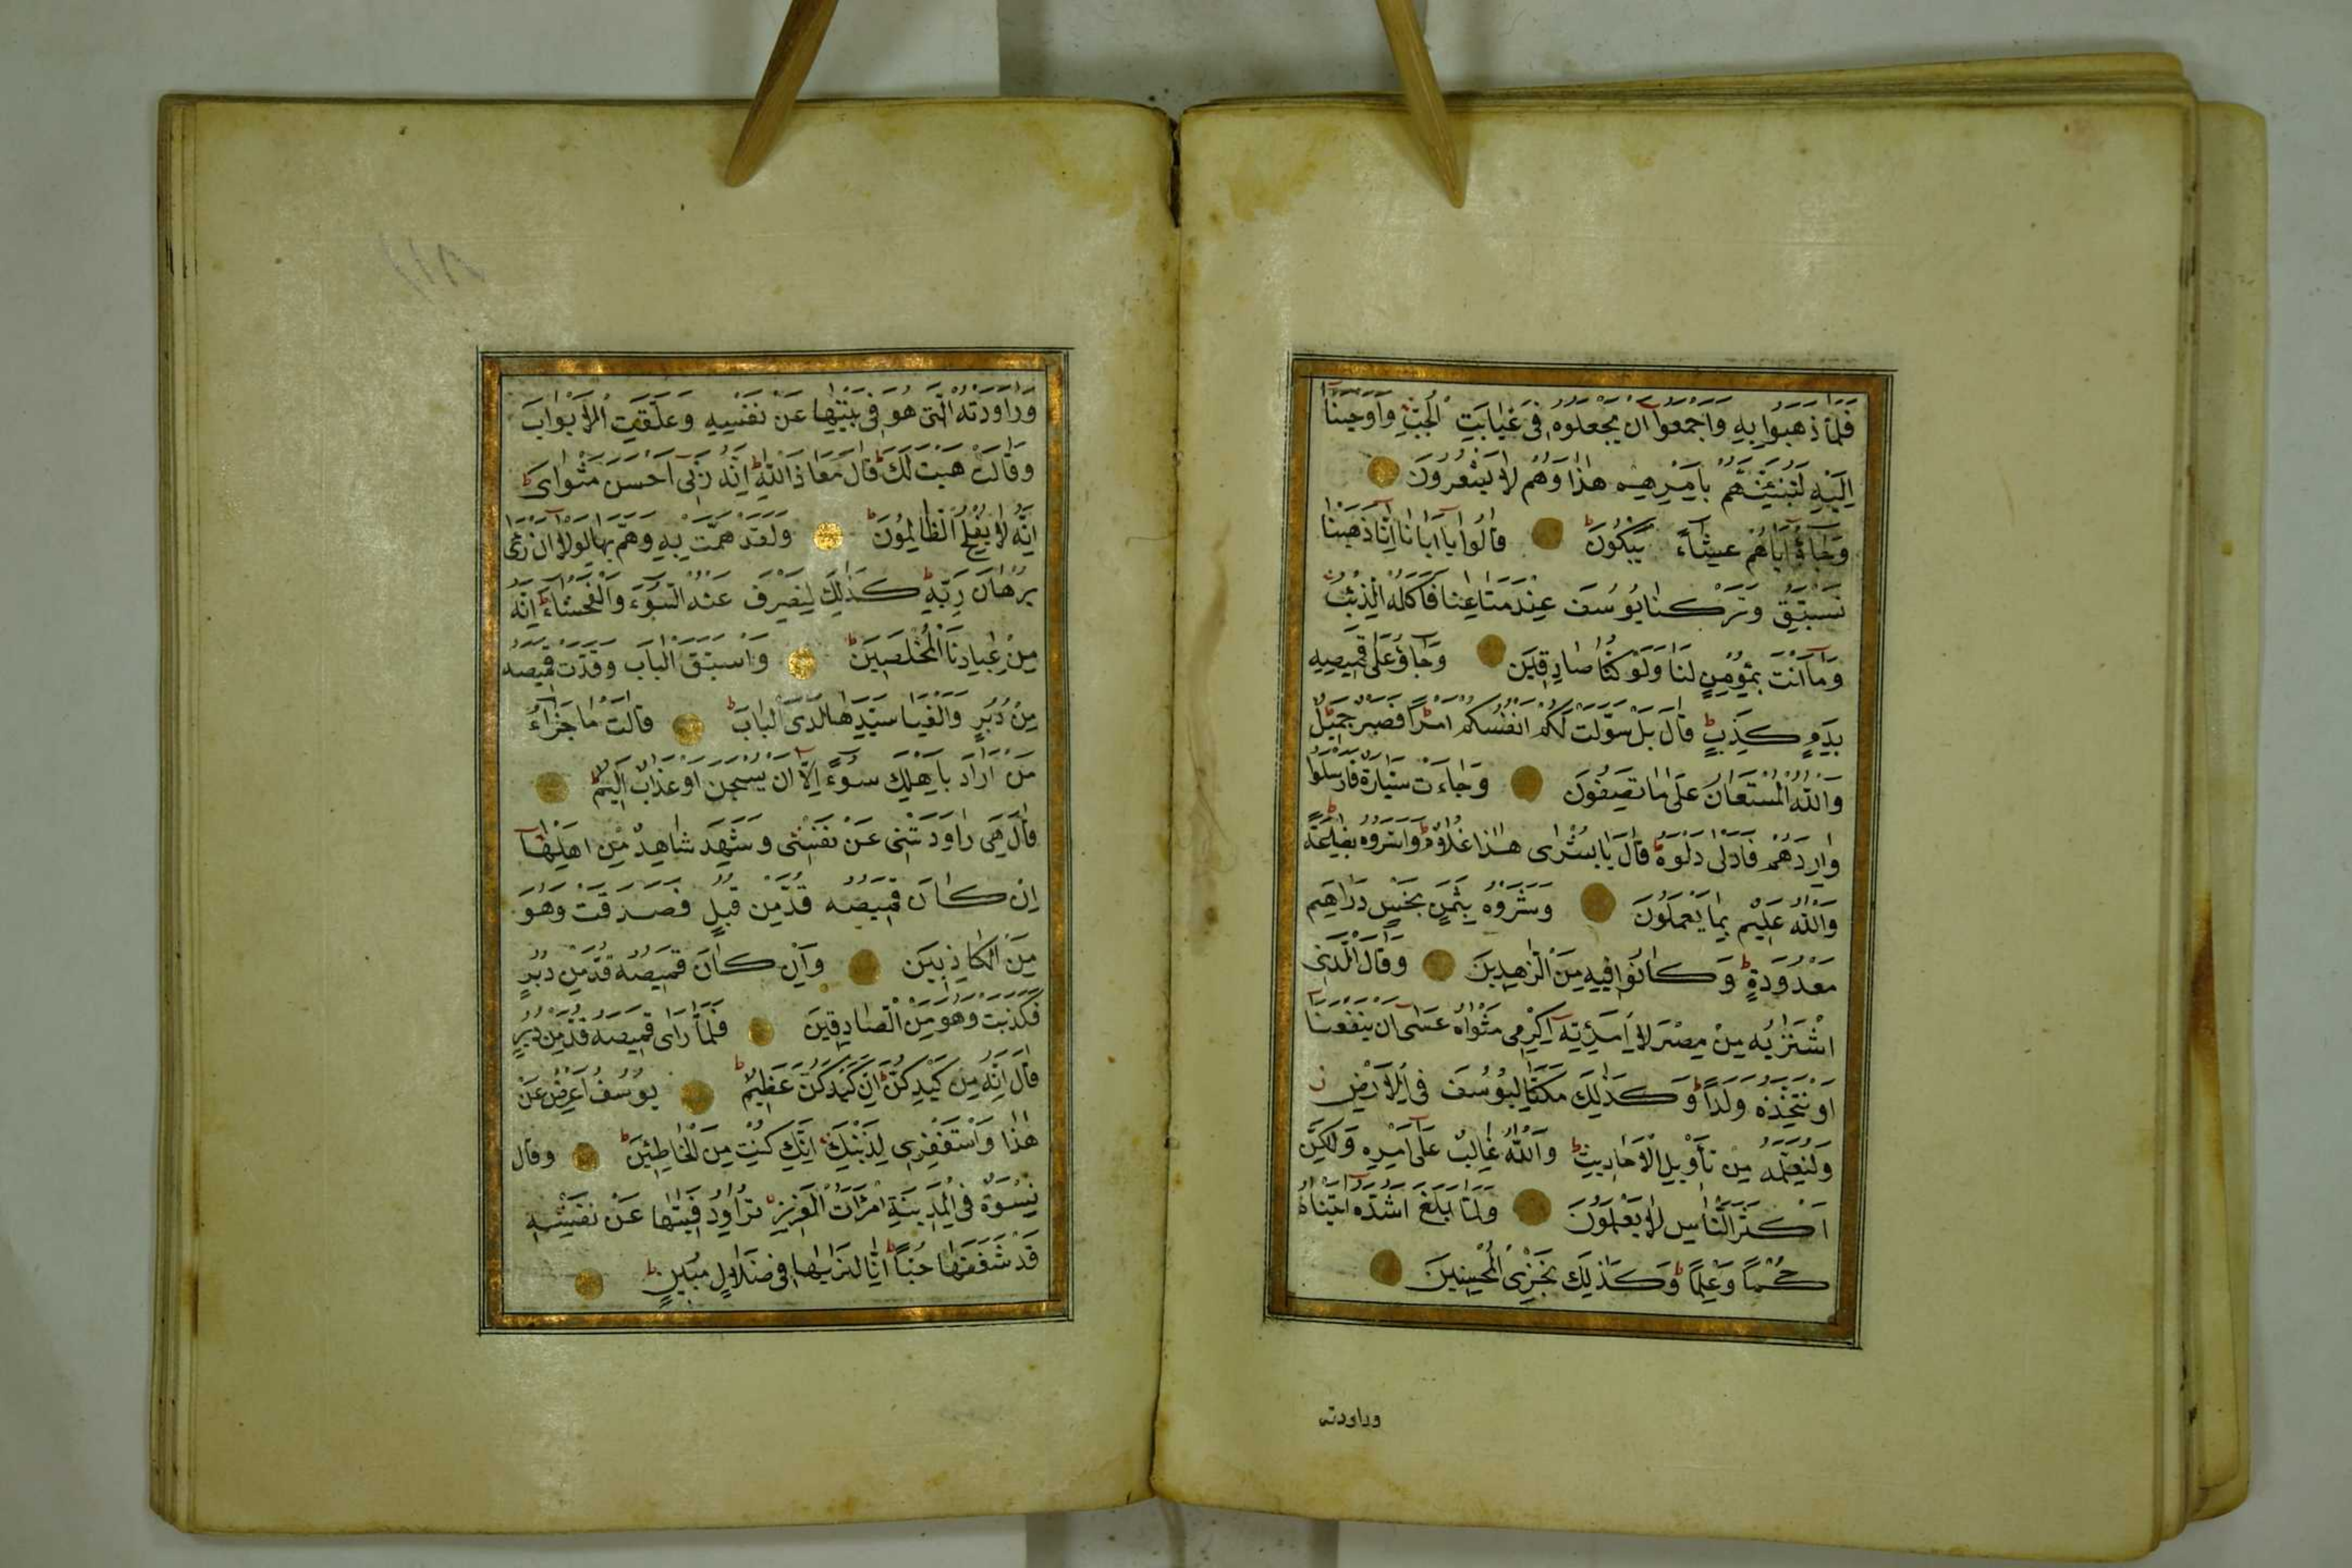 فَلَمَّا ذَهَبُوا بِهِ وَاَجْمَعُوا اَنْ يَجْعَلُوهُ فِى غَيَابَتِ الْجُبِّ وَاَوْحَيْنَا
اِلَيْهِ لَتُنَبِّئَنَّهُمْ بِاَمْرِهِمْ هٰذَا وَهُمْ لَا يَشْعُرُونَ
وَجَاؤُ اَبَاهُمْ عِشَاءً يَبْكُونَ ط قَالُوا يَا اَبَانَا اِنَّا ذَهَبْنَا
نَسْتَبِقُ وَتَرَكْنَا يُوسُفَ عِنْدَ مَتَاعِنَا فَاَكَلَهُ الذِّئْبُ
وَمَا اَنْتَ بِمُؤْمِنٍ لَنَا وَلَوْ كُنَّا صَادِقِينَ وَجَاؤُ عَلَى قَمِيصِهِ
بِدَمٍ كَذِبٍ ط قَالَ بَلْ سَوَّلَتْ لَكُمْ اَنْفُسُكُمْ اَمْرًا فَصَبْرٌ جَمِيلٌ
وَاللّٰهُ الْمُسْتَعَانُ عَلَى مَا تَصِفُونَ وَجَاءَتْ سَيَّارَةٌ فَاَرْسَلُوا
وَارِدَهُمْ فَاَدْلَى دَلْوَهُ ط قَالَ يَا بُشْرٰى هٰذَا غُلَامٌ ط وَاَسَرُّوهُ بِضَاعَةً
وَاللّٰهُ عَلِيمٌ بِمَا يَعْمَلُونَ وَشَرَوْهُ بِثَمَنٍ بَخْسٍ دَرَاهِمَ
مَعْدُودَةٍ ط وَكَانُوا فِيهِ مِنَ الزَّاهِدِينَ وَقَالَ الَّذِى
اشْتَرٰيهُ مِنْ مِصْرَ لِامْرَاَتِهِ اَكْرِمِى مَثْوَاهُ عَسَى اَنْ يَنْفَعَنَا
اَوْ نَتَّخِذَهُ وَلَدًا ط وَكَذٰلِكَ مَكَّنَّا لِيُوسُفَ فِى الْاَرْضِ ز
وَلِنُعَلِّمَهُ مِنْ تَأْوِيلِ الْاَحَادِيثِ ط وَاللّٰهُ غَالِبٌ عَلَى اَمْرِهِ وَلٰكِنَّ
اَكْثَرَ النَّاسِ لَا يَعْلَمُونَ وَلَمَّا بَلَغَ اَشُدَّهُ اٰتَيْنَاهُ
حُكْمًا وَعِلْمًا ط وَكَذٰلِكَ نَجْزِى الْمُحْسِنِينَ
وراودته
١١٨
وَرَاوَدَتْهُ الَّتِى هُوَ فِى بَيْتِهَا عَنْ نَفْسِهِ وَغَلَّقَتِ الْاَبْوَابَ
وَقَالَتْ هَيْتَ لَكَ ط قَالَ مَعَاذَ اللّٰهِ ط اِنَّهُ رَبِّى اَحْسَنَ مَثْوَاىَ ط
اِنَّهُ لَا يُفْلِحُ الظَّالِمُونَ ط وَلَقَدْ هَمَّتْ بِهِ وَهَمَّ بِهَا لَوْلَا اَنْ رَاٰى
بُرْهَانَ رَبِّهِ ط كَذٰلِكَ لِنَصْرِفَ عَنْهُ السُّوءَ وَالْفَحْشَاءَ ط اِنَّهُ
مِنْ عِبَادِنَا الْمُخْلَصِينَ ط وَاسْتَبَقَا الْبَابَ وَقَدَّتْ قَمِيصَهُ
مِنْ دُبُرٍ وَاَلْفَيَا سَيِّدَهَا لَدَى الْبَابِ ط قَالَتْ مَا جَزَاءُ
مَنْ اَرَادَ بِاَهْلِكَ سُوءً اِلَّا اَنْ يُسْجَنَ اَوْ عَذَابٌ اَلِيمٌ ط
قَالَ هِىَ رَاوَدَتْنِى عَنْ نَفْسِى وَشَهِدَ شَاهِدٌ مِنْ اَهْلِهَا
اِنْ كَانَ قَمِيصُهُ قُدَّ مِنْ قُبُلٍ فَصَدَقَتْ وَهُوَ
مِنَ الْكَاذِبِينَ وَاِنْ كَانَ قَمِيصُهُ قُدَّ مِنْ دُبُرٍ
فَكَذَبَتْ وَهُوَ مِنَ الصَّادِقِينَ فَلَمَّا رَاٰى قَمِيصَهُ قُدَّ مِنْ دُبُرٍ
قَالَ اِنَّهُ مِنْ كَيْدِكُنَّ ط اِنَّ كَيْدَكُنَّ عَظِيمٌ ط يُوسُفُ اَعْرِضْ عَنْ
هٰذَا وَاسْتَغْفِرِى لِذَنْبِكِ اِنَّكِ كُنْتِ مِنَ الْخَاطِئِينَ ط وَقَالَ
نِسْوَةٌ فِى الْمَدِينَةِ امْرَاَتُ الْعَزِيزِ تُرَاوِدُ فَتٰيهَا عَنْ نَفْسِهِ
قَدْ شَغَفَهَا حُبًّا ط اِنَّا لَنَرٰيهَا فِى ضَلَالٍ مُبِينٍ ط